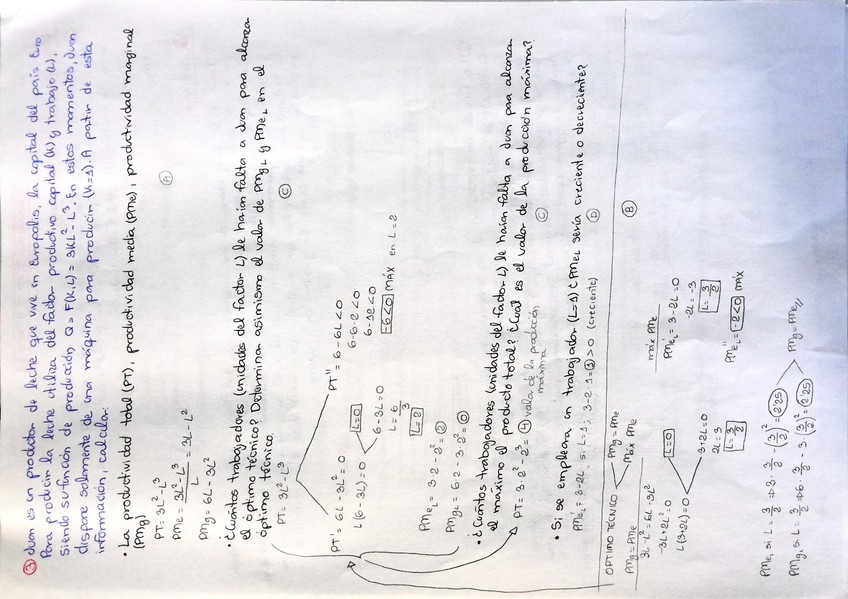 ③ Juan es un productor de leche que vive en Europolis, la capital del país Euro
Para producir la leche utiliza del factor productivo capital (K) y trabajo (L),
siendo su función de producción Q = F(K,L) = 3KL² - L³. En estos momentos, Juan
dispone solamente de una máquina para producir (K=1). A partir de esta
información, calcular:
• La productividad total (PT), productividad media (PMe), productividad marginal
(PMg) Ⓐ
PT = 3L² - L³
PMe = 3L² - L³ / L = 3L - L²
PMg = 6L - 3L²
• ¿Cuántos trabajadores (unidades del factor L) le harían falta a Juan para alcanzar
el óptimo técnico? Determinar asimismo el valor de PMgL y PMeL en el
óptimo técnico. Ⓒ
PT = 3L² - L³
PT' = 6L - 3L² = 0
L(6 - 3L) = 0
L = 0
6 - 3L = 0
L = 6/3
L = 2
PT'' = 6 - 6L < 0
6 - 6·2 < 0
6 - 12 < 0
-6 < 0 MÁX en L = 2
PMeL = 3·2 - 2² = 2
PMgL = 6·2 - 3·2² = 0
• ¿Cuántos trabajadores (unidades del factor L) le harían falta a Juan para alcanzar
el máximo el producto total? ¿Cuál es el valor de la producción máxima?
PT = 3·2² - 2³ = 4 valor de la producción
máxima Ⓒ
• Si, se empleara un trabajador (L=1) ¿PMeL sería creciente o decreciente?
PMe'L = 3 - 2L - si L=1; 3 - 2·1 = 1 > 0 (creciente) Ⓓ
OPTIMO TECNICO
PMg = PMe
Máx PMe
Ⓑ
PMg = PMe
3L - L² = 6L - 3L²
-3L + 2L² = 0
L(3+2L) = 0
L = 0
3 - 2L = 0
2L = 3
L = 3/2
máx PMe
PMe'L = 3 - 2L = 0
-2L = -3
L = 3/2
PMe''L = -2 < 0 máx
PMe, si L = 3/2 → 3·3/2 - (3/2)² = 2'25
PMg, si L = 3/2 → 6·3/2 - 3·(3/2)² = 2'25
PMg = PMe //